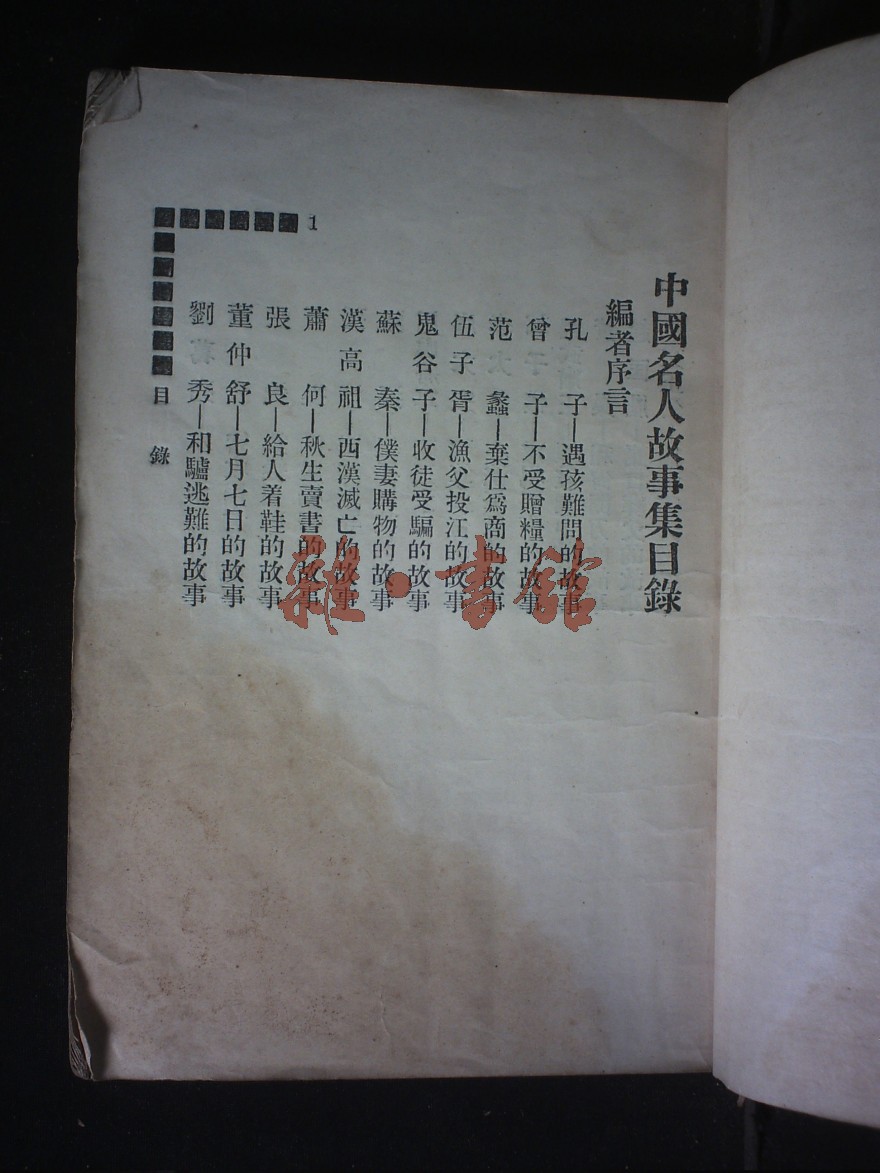 中國名人故事集目錄
編者序言
孔子—遇孩難問的故事
曾子—不受贈糧的故事
范蠡—棄仕爲商的故事
伍子胥—漁父投江的故事
鬼谷子—收徒受騙的故事
蘇秦—僕妻購物的故事
漢高祖—西漢滅亡的故事
蕭何—秋生賣書的故事
張良—給人着鞋的故事
董仲舒—七月七日的故事
劉秀—和驢逃難的故事
目錄
1
雜·書館